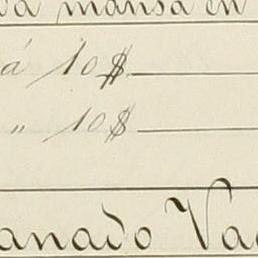 va mansa en
á 10$
" 10$
anado Va